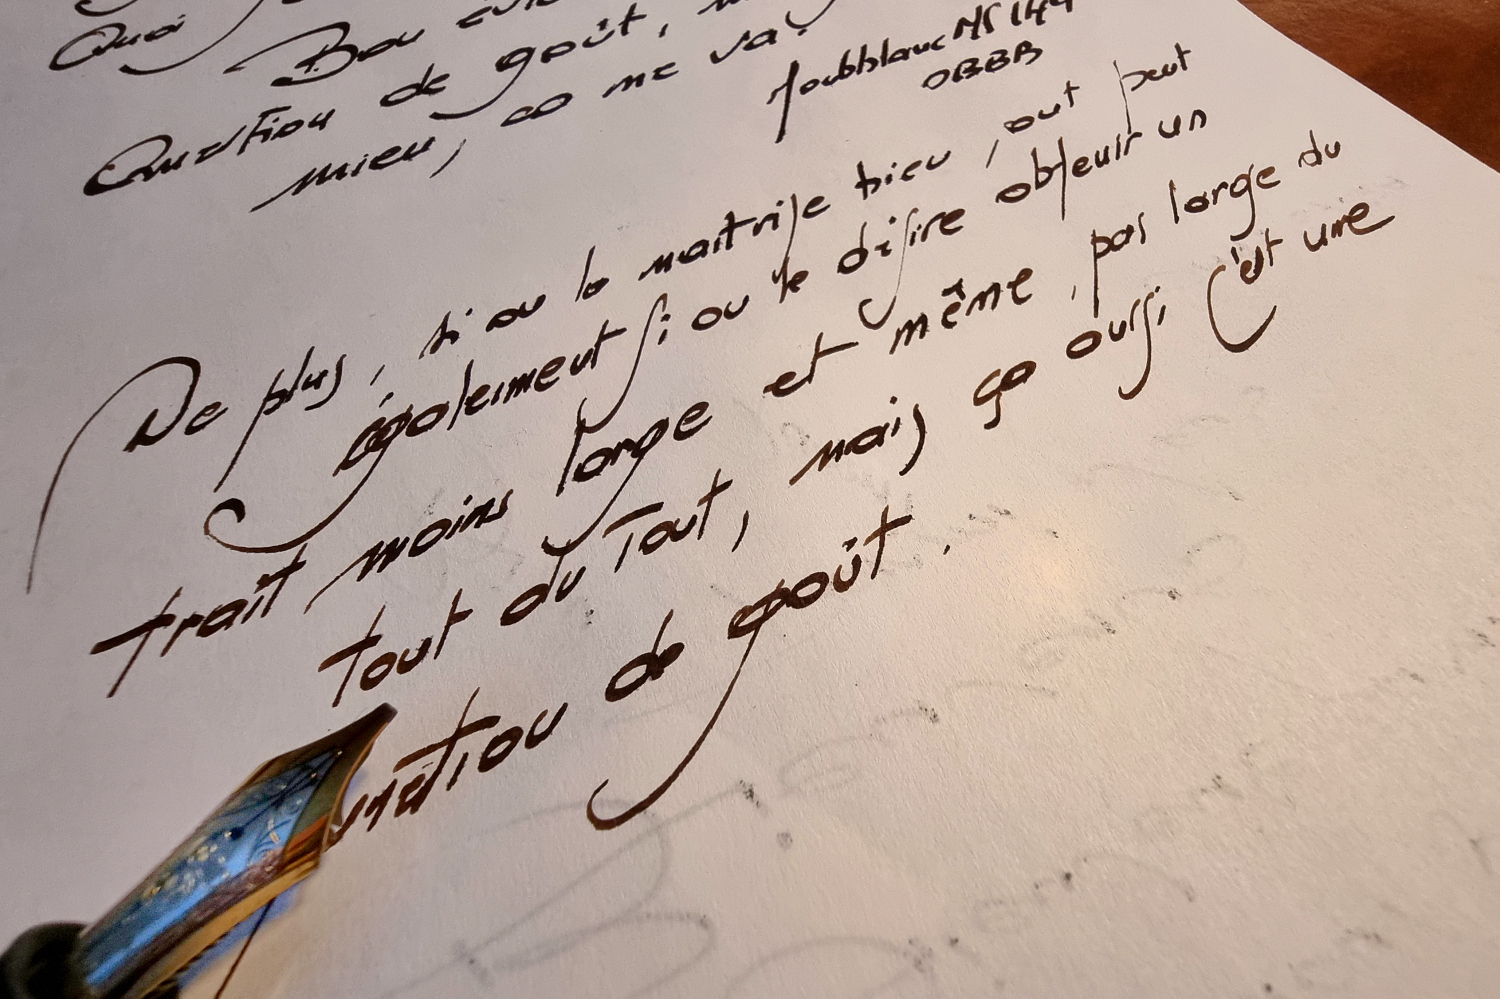 Quoi
Bou
Question de goût,
mieu, ça me va,
Moubblanc M 144
OBBB
De plus, si on la maitrise bien, on peut
également si on le désire obtenir un
trait moins large et même, pas large du
tout du Tout, mais ça aussi c'est une
question de goût.